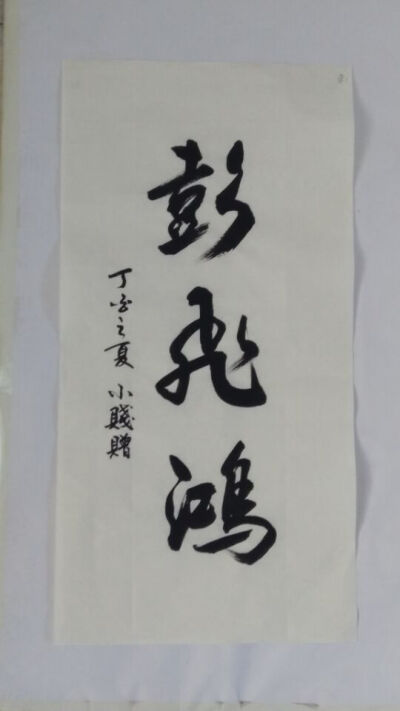 彭飛鴻
丁酉之夏 小賤贈